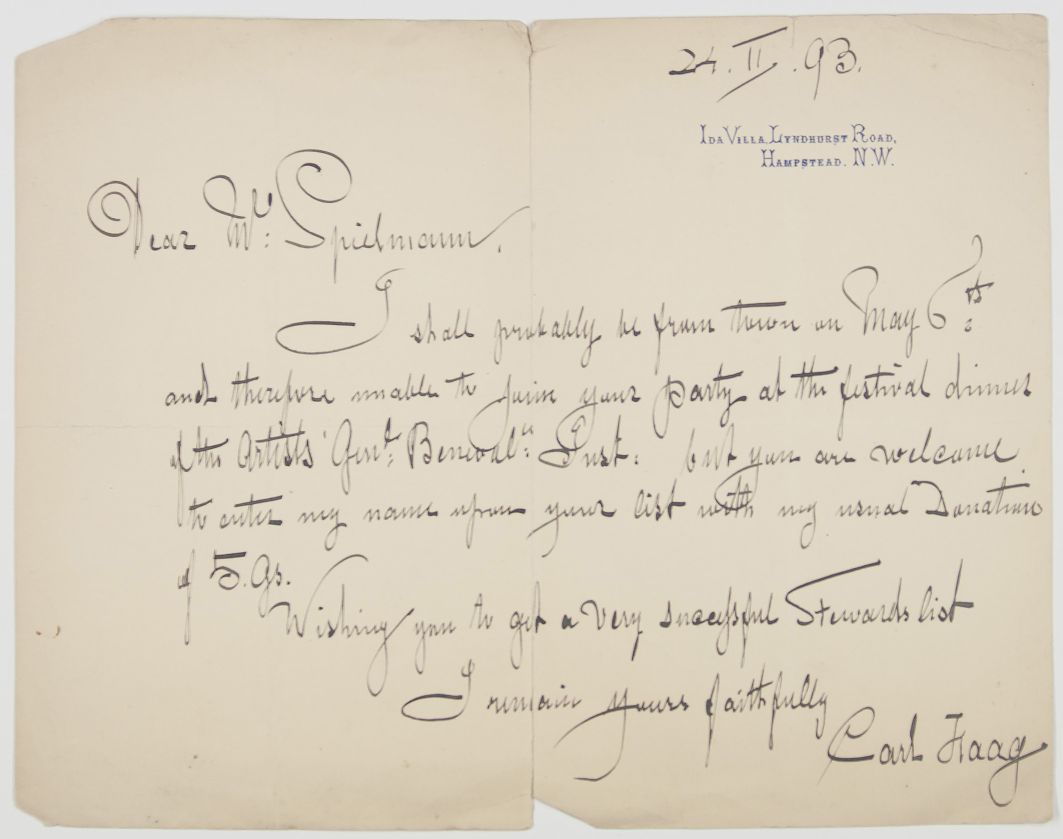 24.II.93.
Ida Villa, Lyndhurst Road,
Hampstead. N.W.
Dear Mr: Spielmann.
I shall probably be from town on May 6th:
and therefore unable to join your party at the festival dinner
of the Artists' Genl: Benevolt: Inst: but you are welcome
to enter my name upon your list with my usual Donation
of 5.gs.
Wishing you to get a very successful Stewards list
I remain yours faithfully
Carl Haag